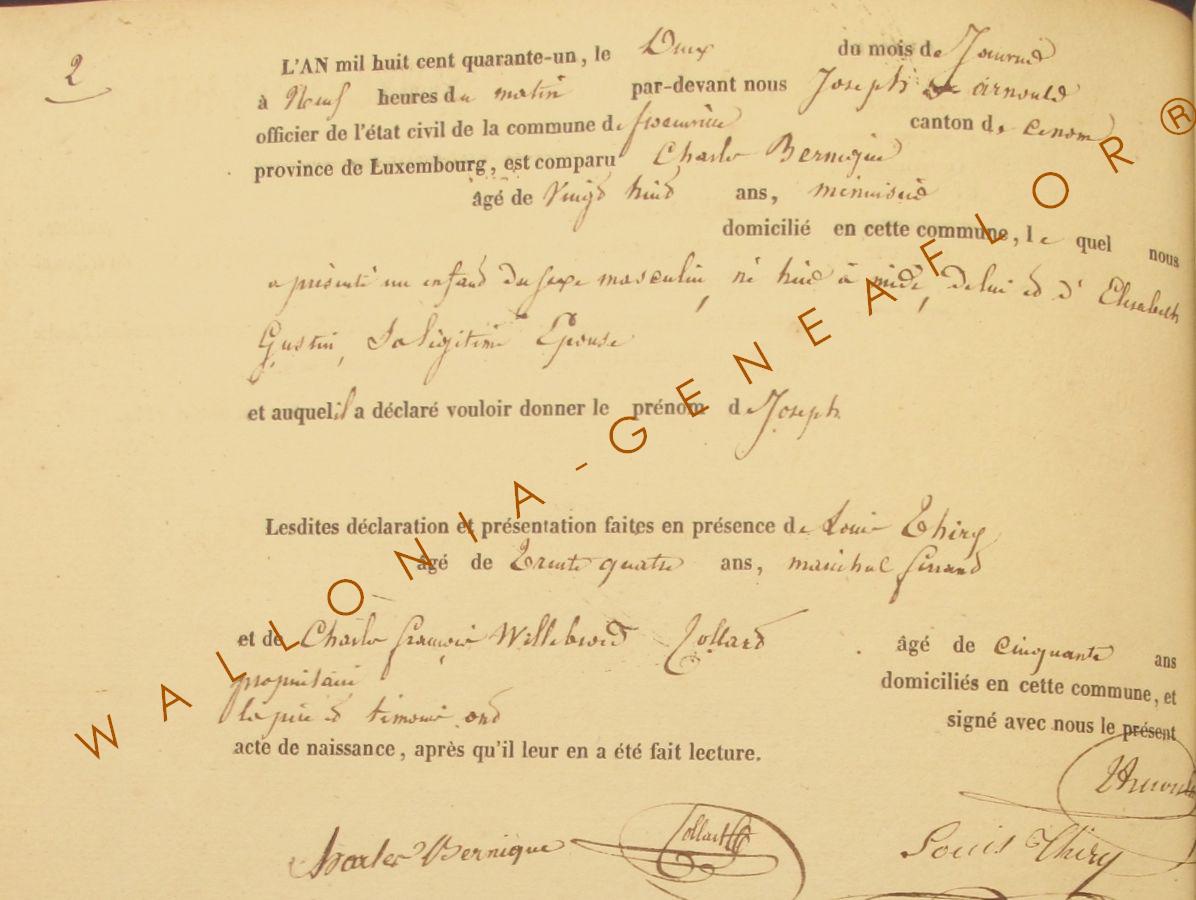 2
L'AN mil huit cent quarante-un, le Deux du mois de Janvier
à Neuf heures du matin par-devant nous Joseph arnould
officier de l'état civil de la commune de canton de
province de Luxembourg, est comparu Charles Bernique
âgé de Vingt huit ans, menuisier
domicilié en cette commune, le quel nous
a présenté un enfant du sexe masculin, né hier à midi, de lui et d' Elisabeth
Gustin, Sa légitime Epouse
et auquel il a déclaré vouloir donner le prénom de Joseph
Lesdites déclaration et présentation faites en présence de Louis Thiry
âgé de Trente quatre ans, maréchal ferrant
et de Charles françois Willebrord Collard âgé de cinquante ans
propriétaire domiciliés en cette commune, et
le père et témoins ont signé avec nous le présent
acte de naissance, après qu'il leur en a été fait lecture.
Charles Bernique Collard Louis Thiry
WALLONIA-GENEAFLOR®